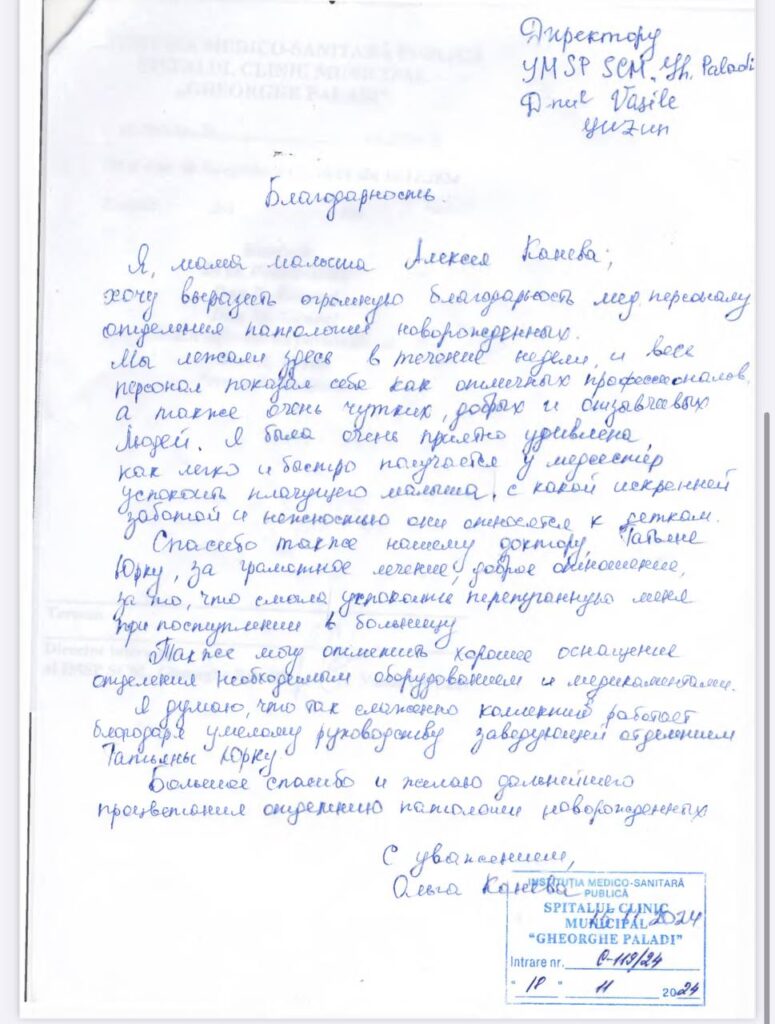 Директору
YMSP SCM. Gh. Paladi
D-nul Vasile
Guzun
Благодарность.
Я, мама малыша Алексея Канева,
хочу выразить огромную благодарность мед. персоналу
отделения патологии новорожденных.
Мы лежали здесь в течение недели, и весь
персонал показал себя как отличных профессионалов,
а также очень чутких, добрых и отзывчивых
людей. Я была очень приятно удивлена,
как легко и быстро получается у медсестёр
успокоить плачущего малыша, с какой искренней
заботой и нежностью они относятся к деткам.
Спасибо также нашему доктору, Татьяне
Юрку, за грамотное лечение, доброе отношение,
за то, что смогла успокоить перепуганную меня
при поступлении в больницу
Также могу отметить хорошее оснащение
отделения необходимым оборудованием и медикаментами.
Я думаю, что так слаженно коллектив работает
благодаря умелому руководству заведующей отделением
Татьяны Юрку
Большое спасибо и желаю дальнейшего
процветания отделению патологии новорожденных
С уважением,
Ольга Канева
INSTITUȚIA MEDICO-SANITARĂ
PUBLICĂ
SPITALUL CLINIC
11.2024
MUNICIPAL
"GHEORGHE PALADI"
Intrare nr. C-119/24
" 18 " 11 2024